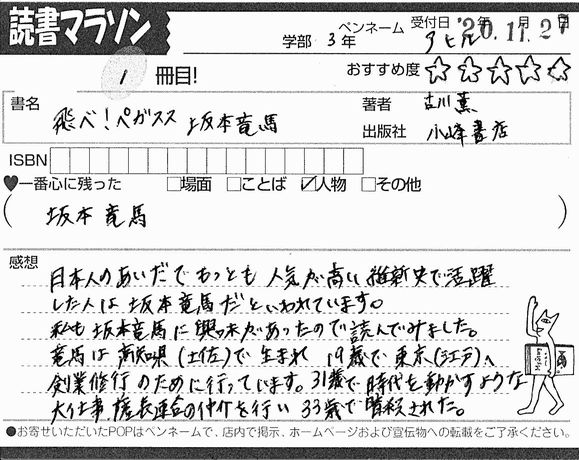 読書マラソン
学部 3年
ペンネーム アヒル
受付日 '20年11月27日
1 冊目!
おすすめ度 ☆☆☆☆☆
書名 飛べ!ペガスス 坂本竜馬
著者 古川薫
出版社 小峰書店
ISBN
♥一番心に残った □場面 □ことば ☑人物 □その他
( 坂本竜馬 )
感想
日本人のあいだでもっとも人気が高い維新史で活躍
した人は坂本竜馬だといわれています。
私も坂本竜馬に興味があったので読んでみました。
竜馬は高知県(土佐)で生まれ 19歳で東京(江戸)へ
修行のために行っています。31歳で時代を動かすような
大仕事薩長連合の仲介を行い 33歳で暗殺された。
●お寄せいただいたPOPはペンネームで、店内で掲示、ホームページおよび宣伝物への転載をご了承ください。